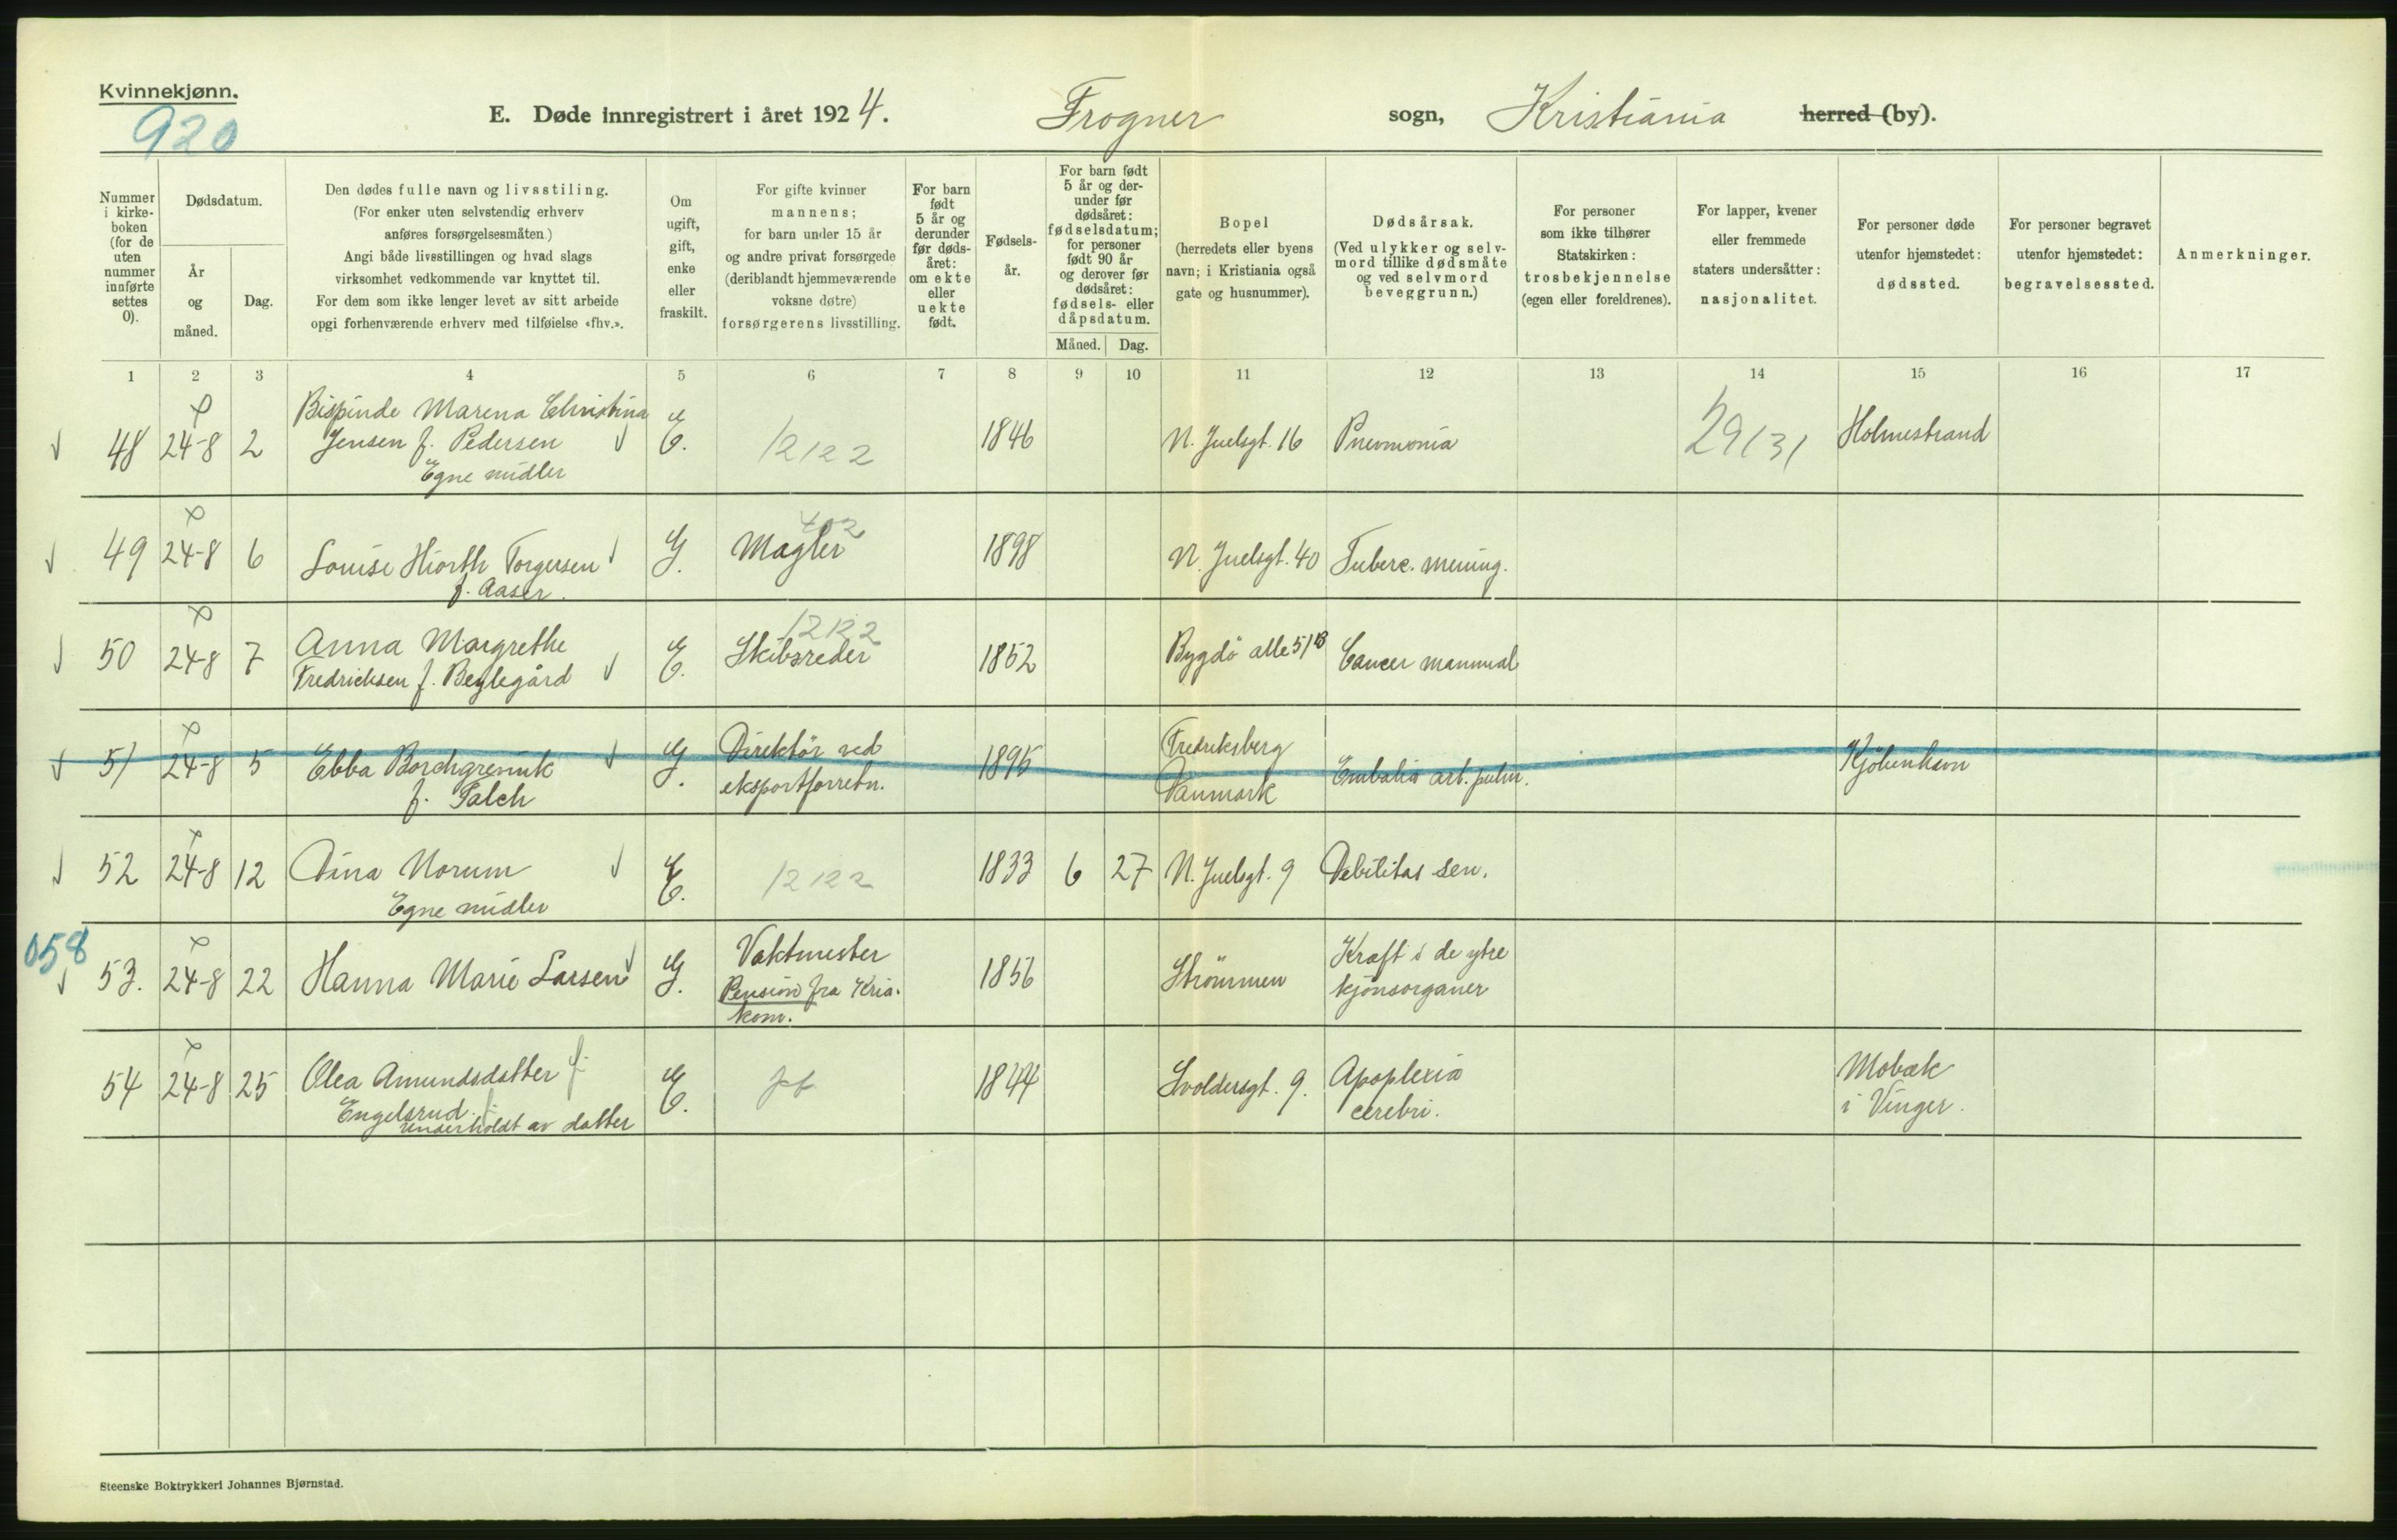 Kvinnekjønn.
920
E. Døde innregistrert i året 1924. Frogner sogn, Kristiania herred (by).
Nummer i kirke-boken (for de uten nummer innførte settes 0).
Dødsdatum.
År og måned.
Dag.
Den dødes fulle navn og livsstiling.
(For enker uten selvstendig erhverv
anføres forsørgelsesmåten)
Angi både livsstillingen og hvad slags
virksomhet vedkommende var knyttet til.
For dem som ikke lenger levet av sitt arbeide
opgi forhenværende erhverv med tilføielse «fhv.».
Om
ugift,
gift,
enke
eller
fraskilt.
For gifte kvinner
mannens;
for barn under 15 år
og andre privat forsørgede
(deriblandt hjemmeværende
voksne døtre)
forsørgerens livsstilling.
For barn
født
5 år og
derunder
før døds-
året:
om ekte
eller
uekte
født.
Fødsels-
år.
For barn født
5 år og der-
under før
dødsåret:
fødselsdatum;
for personer
født 90 år
og derover før
dødsåret:
fødsels- eller
dåpsdatum.
Måned. Dag.
Bopel
(herredets eller byens
navn; i Kristiania også
gate og husnummer).
Dødsårsak.
(Ved ulykker og selv-
mord tillike dødsmåte
og ved selvmord
beveggrunn.)
For personer
som ikke tilhører
Statskirken:
trosbekjennelse
(egen eller foreldrenes).
For lapper, kvener
eller fremmede
staters undersåtter:
nasjonalitet.
For personer døde
utenfor hjemstedet:
dødssted.
For personer begravet
utenfor hjemstedet:
begravelsessted.
Anmerkninger.
1 2 3 4 5 6 7 8 9 10 11 12 13 14 15 16 17
Bispinde Marena Christina
48 24-8 2 Jensen f. Pedersen E. 12122 1846 N. Juelsgt. 16 Pneumonia 29/31 Holmestrand
Egne midler
402
49 24-8 6 Louise Hiorth Torgersen G. Mægler 1898 N. Juelsgt. 40 Tuberc. mening.
f. Aaser.
12122
50 24-8 7 Anna Margrethe E. Skibsreder 1852 Bygdö alle 51B Cancer mammal
Fredricksen f. Beglegård
51 24-8 5 Ebba Borchgrevink G. Direktör ved 1895 Fredriksberg Embolia art. pulm. Kjöbenhavn
f. Falch eksportforretn. Danmark
52 24-8 12 Dina Norum E. 12122 1833 6 27 N. Juelsgt. 9 Debilitas sen.
Egne midler
058
53. 24-8 22 Hanna Marie Larsen G. Vaktmester 1856 Strömmen Kræft i de ytre
Pension fra Kria. kjönsorganer
kom.
54 24-8 25 Olea Amundsdatter E. 1844 Svoldersgt. 9. Apoplexia Mobæk
Engelsrud. cerebri. i Vinger.
underholdt av datter
Steenske Boktrykkeri Johannes Bjørnstad.